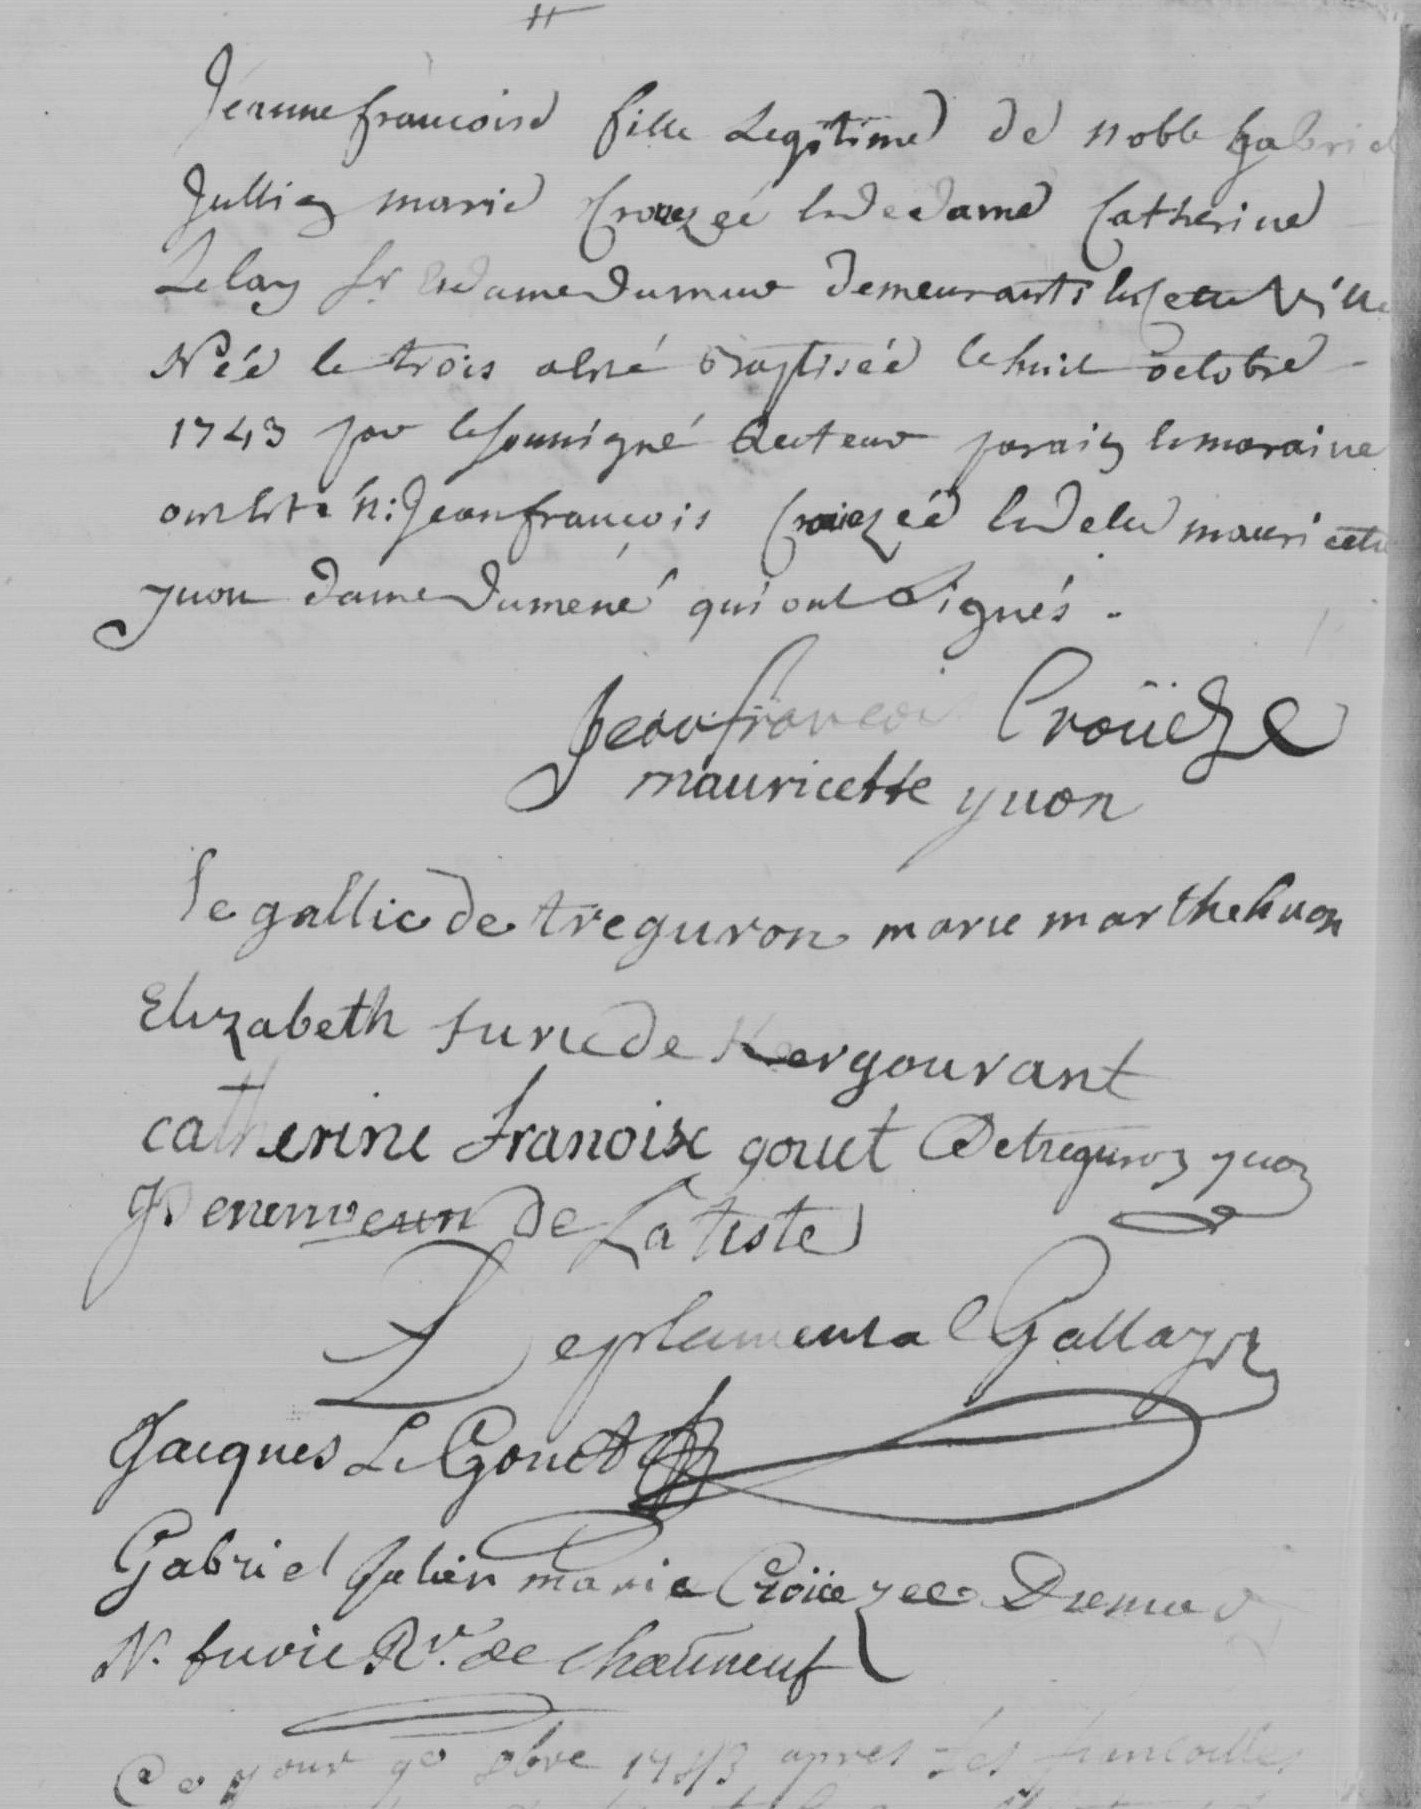 Jeanne francoise fille Legitime de noble gabriel
Jullien marie Crouezeé et de dame Catherine
Le lay Sr et dame dumur demeurants en cette Ville
Néé le trois a été Baptiséé le huit octobre
1743 par le soussigné Recteur parain et maraine
ont été n: Jean francois Crouezéé et delle mauricette
yuon dame duméné qui ont Signés.
Jean francois Croüezé
mauricette yuon
le gallic de treguron marie marthe huon
Elizabeth furic de Kergourant
catherine franoise gouet De treguron yuon
de La tiste
Le Gallay
Jacques Le Gouet
Gabriel Julien marie Croüezee Dumur
N. furic Rr. de chatuneuf
Ce jour 9e 8bre 1743 apres les fiancailles